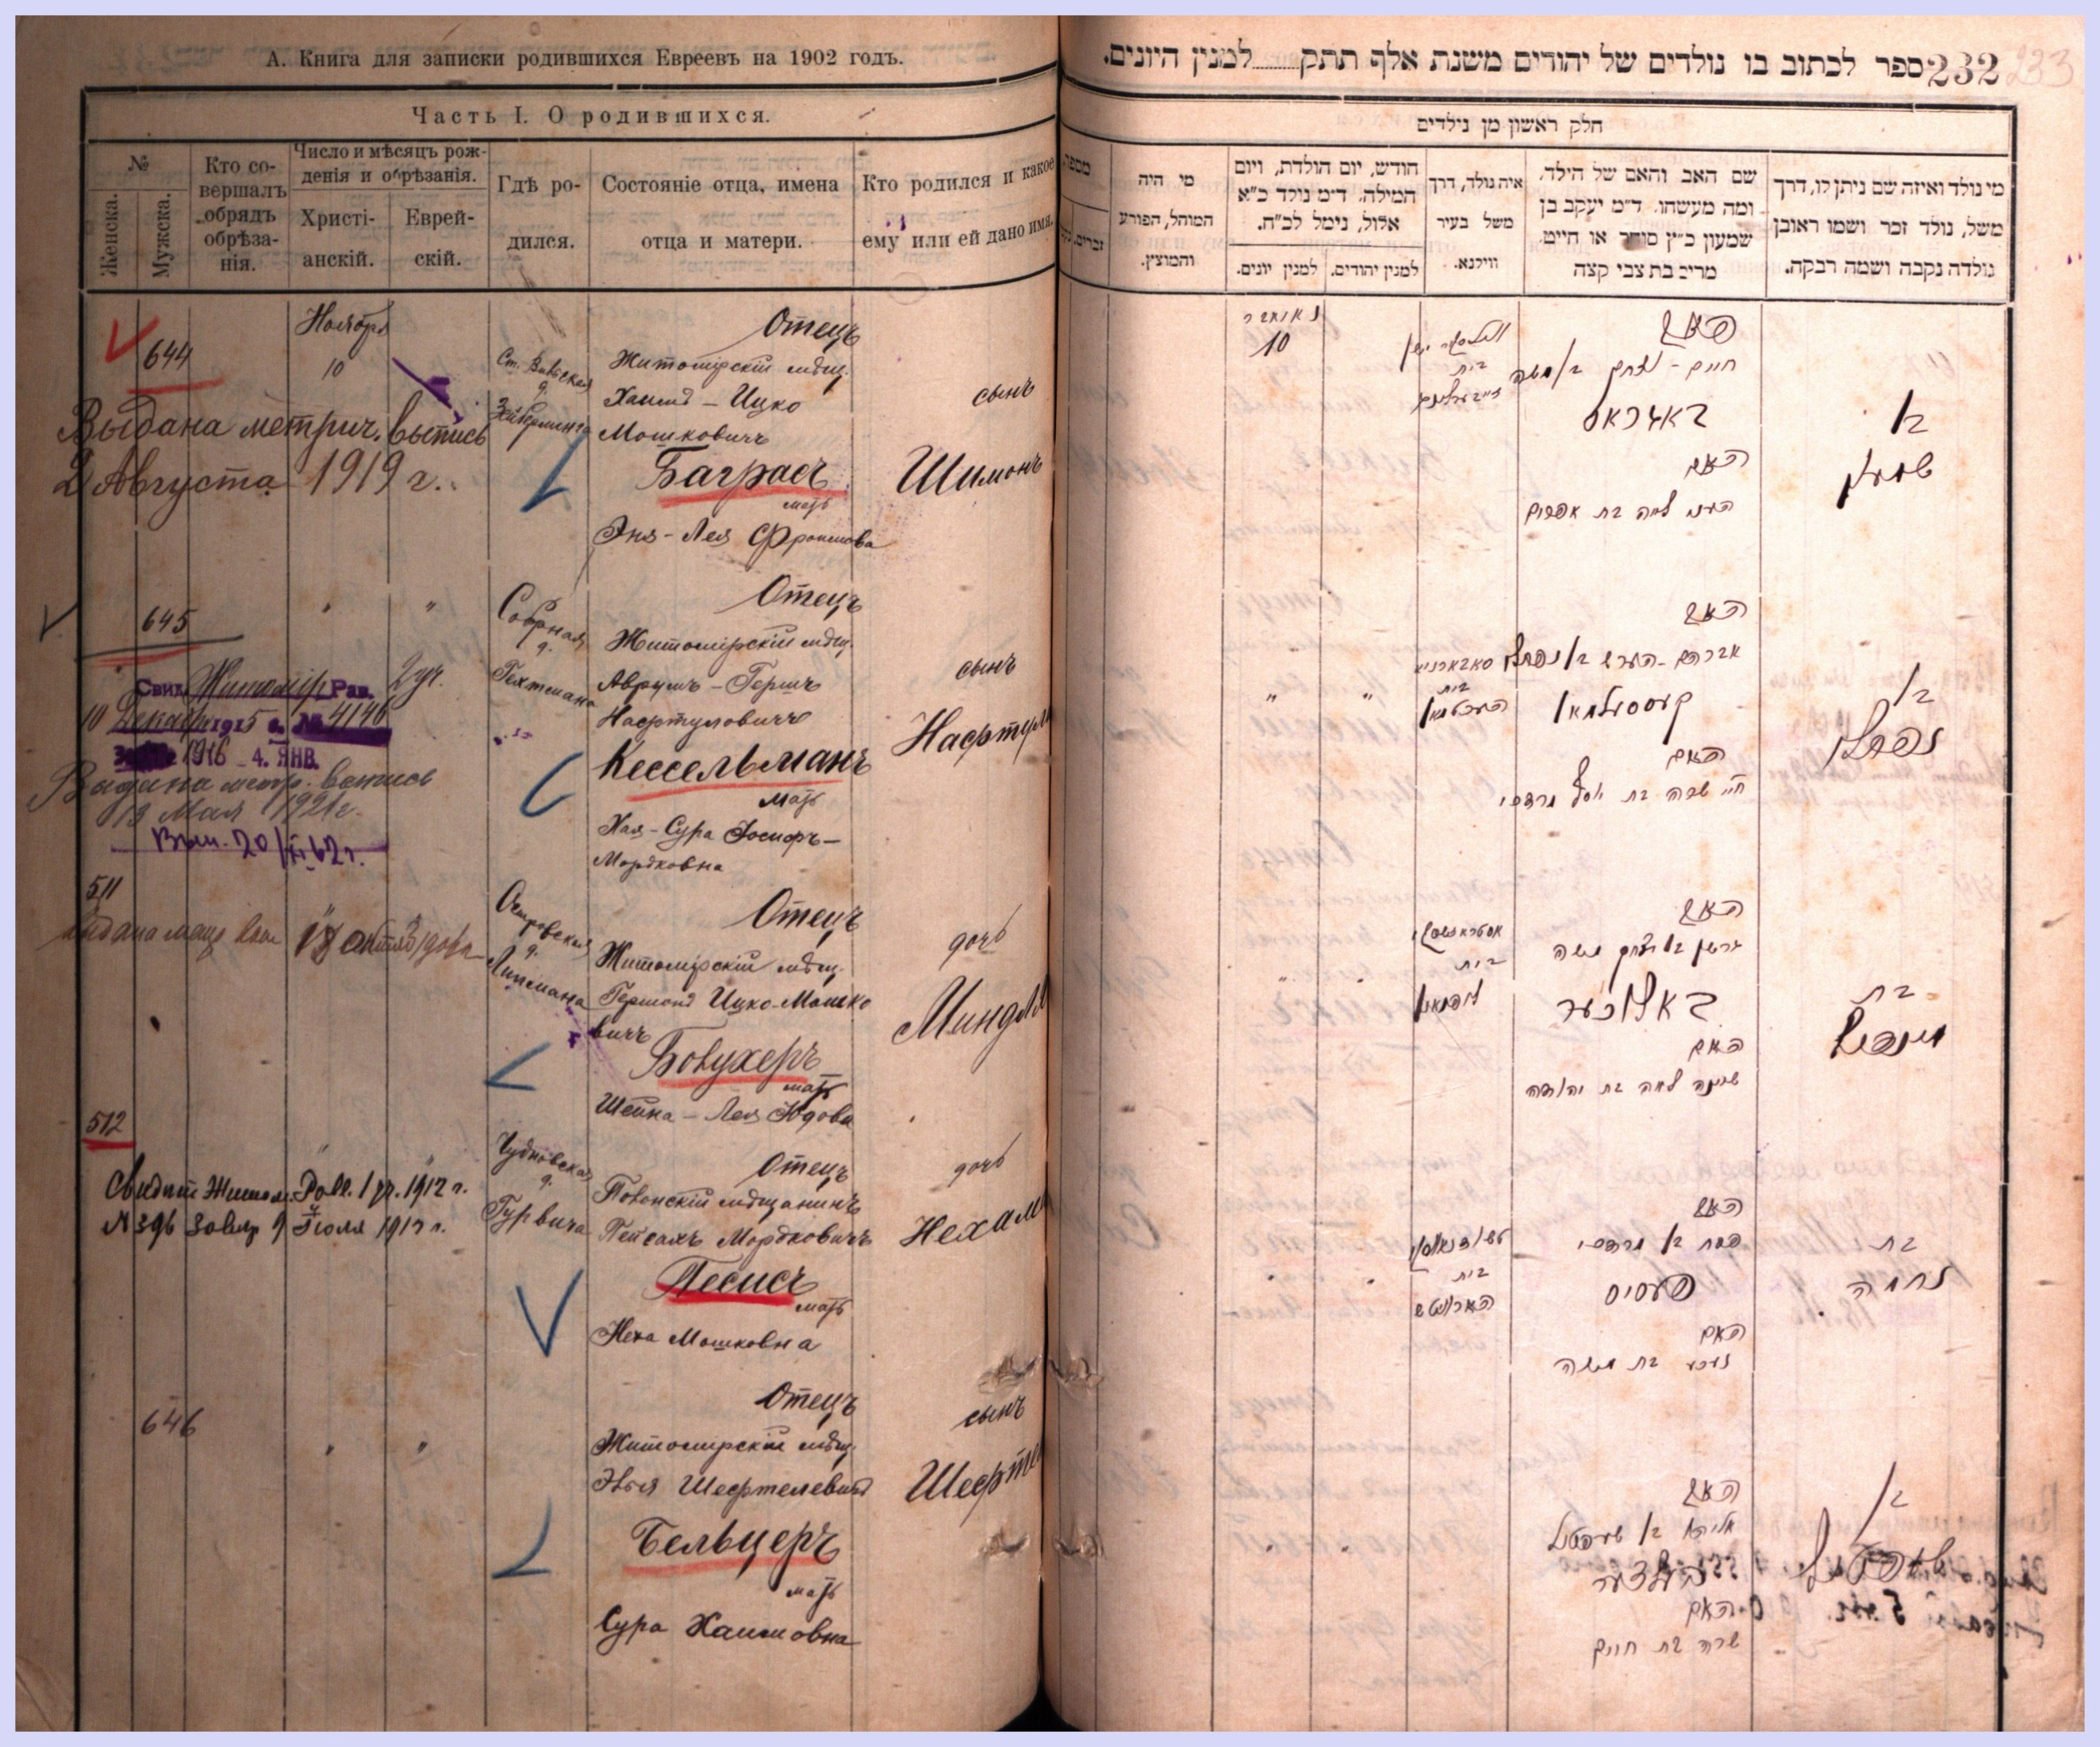 А. Книга для записки родившихся Евреевъ на 1902 годъ.
Часть I. О родившихся.
№
Женска.
Мужска.
Кто со-
вершалъ
обрядъ
обрѣза-
нія.
Число и мѣсяцъ рож-
денія и обрѣзанія.
Христі-
анскій.
Еврей-
скій.
Гдѣ ро-
дился.
Состояніе отца, имена
отца и матери.
Кто родился и какое
ему или ей дано имя.
644
Ноября
10
Отецъ
Житомірскій мѣщ.
Хаимъ - Ицко
Мошковичъ
Баграсъ
мать
Эня - Лея Фроимова
сынъ
Шимонъ
Выдана метрич. выпись
2 Августа 1919 г.
645
"
"
Соборная
д.
Гехтмана
Отецъ
Житомірскій мѣщ.
Аврумъ - Гершъ
Нафтуловичъ
Кессельманъ
мать
Хая - Сура Іосифъ -
Мордковна
сынъ
Нафтули
Свид. Житомір Рав. 2 уч.
10 Декабря 1915 г. № 4146
1916 - 4. ЯНВ.
Выдана метр. выпись
19 Мая 1921 г.
Вып. 20/XI 62 г.
511
Островская
д.
Липмана
Отецъ
Житомірскій мѣщ.
Гершонъ Ицко-Мошко
вичъ
Бовухеръ
мать
Шейна - Лея Юдова
дочь
Миндля
512
Чудновская
д.
Гурвича
Отецъ
мѣщанинъ
Пейсахъ Мордковичъ
Песисъ
мать
Неха Мошковна
дочь
Нехама
Свидѣт Житом. Равв. 1 уч. 1912 г.
№ 396 9 Іюля 1912 г.
646
"
"
Отецъ
Житомірскій мѣщ.
Эвья Шефтелевичъ
Бельцеръ
мать
Сура Хаимовна
сынъ
Шефтель
232 ספר לכתוב בו נולדים של יהודים משנת אלף תתק........למנין היונים.
233
חלק ראשון מן נילדים
מי נולד ואיזה שם ניתן לו, דרך
משל, נולד זכר ושמו ראובן
נולדה נקבה ושמה רבקה.
שם האב והאם של הילד,
ומה מעשהו. ד״מ יעקב בן
שמעון כ״ץ סוחר או חייט.
מרים בת צבי קצה
איה נולד, דרך
משל בעיר
ווילנא.
חודש, יום הולדת, ויום
המילה. ד״מ נולד כ״א
אלול, נימל לכ״ח.
למנין יהודים.
למנין יונים.
מי היה
המוהל, הפורע
והמוצץ.
האב
חיים - יצחק בן משה
באגראס
האם
הענא לאה בת אפרים
10
בן
שמעון
האב
אברהם - הערש בן נפתלי
קעססעלמאן
האם
חי׳ שרה בת יוסף מרדכי
בית
העכטמאן
"
"
בן
נפתלי
האב
גרשון בן יצחק משה
האם
שיינה לאה בת יהודה
בית
ליפמאן
בת
מינדיל
האב
פסח בן מרדכי
פעסיס
האם
נעכע בת משה
בית
בת
נחמה
האב
אליהו בן שעפטיל
בעלצער
האם
שרה בת חיים
בן
שעפטיל